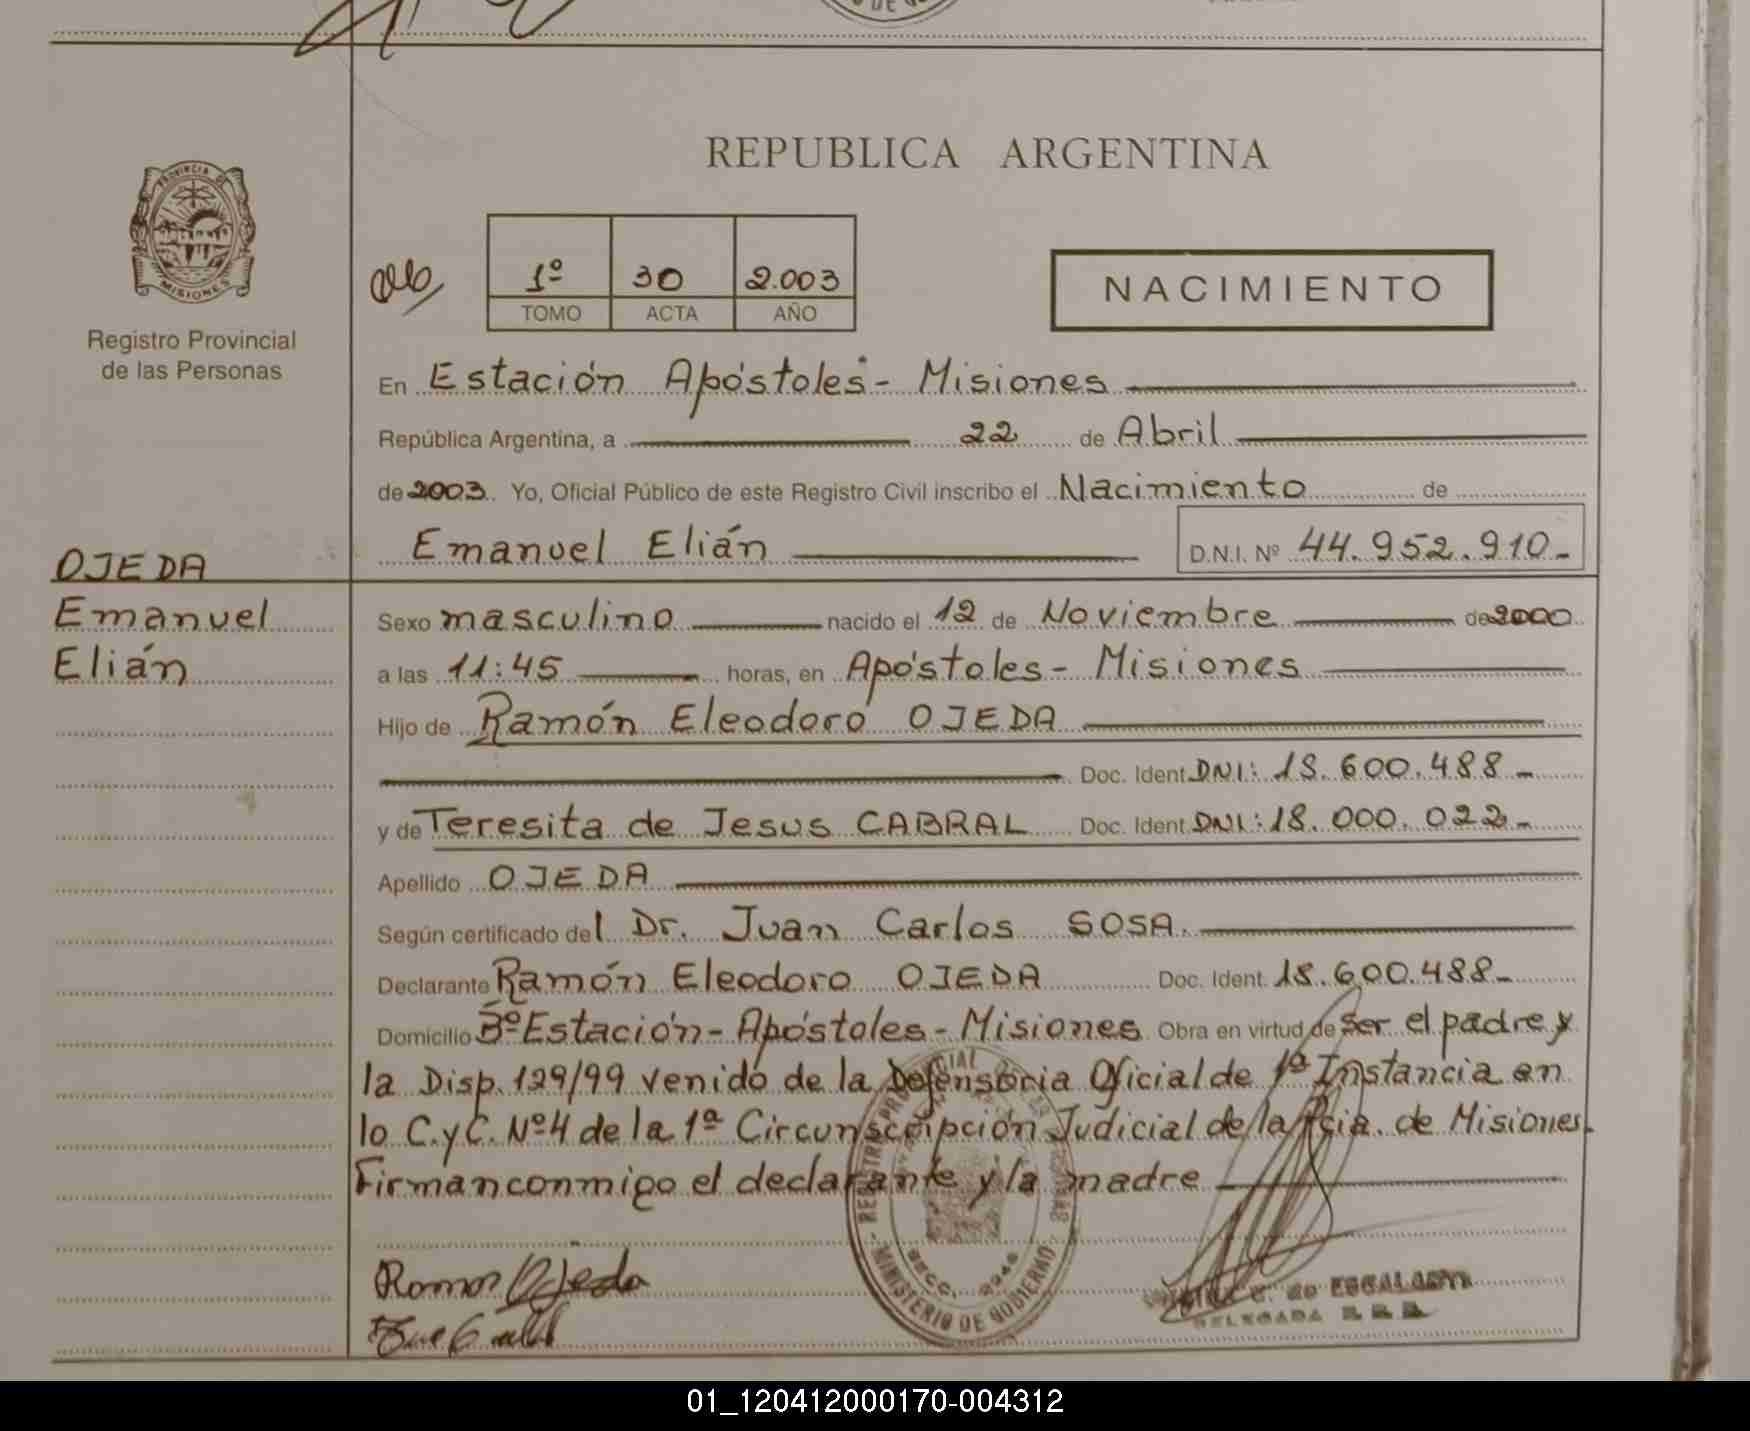 REPUBLICA ARGENTINA
PROVINCIA DE
MISIONES
Registro Provincial
de las Personas
1º 30 2.003
TOMO ACTA AÑO
NACIMIENTO
En Estación Apóstoles - Misiones
República Argentina, a 22 de Abril
de 2003. Yo, Oficial Público de este Registro Civil inscribo el Nacimiento de
Emanuel Elián D.N.I. Nº 44.952.910-
OJEDA
Emanuel
Elián
Sexo masculino nacido el 12 de Noviembre de 2000
a las 11:45 horas, en Apóstoles - Misiones
Hijo de Ramón Eleodoro OJEDA
Doc. Ident. DNI: 18.600.488-
y de Teresita de Jesus CABRAL Doc. Ident. DNI: 18.000.022-
Apellido OJEDA
Según certificado del Dr. Juan Carlos SOSA.
Declarante Ramón Eleodoro OJEDA Doc. Ident. 18.600.488-
Domicilio Bº Estación - Apóstoles - Misiones Obra en virtud de ser el padre y
la Disp. 129/99 venido de la Defensoria Oficial de 1ª Instancia en
lo C.yC. Nº4 de la 1ª Circunscripción Judicial de la Pcia. de Misiones.
Firman conmigo el declarante y la madre
Ramon Ojeda
MINISTERIO DE GOBIERNO
de ESCALANTE
DELEGADA
01_120412000170-004312